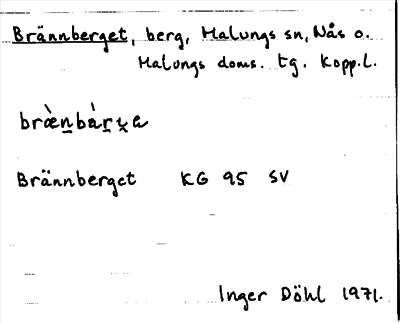 Brännberget, berg, Malungs sn, Nås o.
Malungs doms. tg. Kopp.l.
Brännberget KG 95 SV
Inger Döhl 1971.